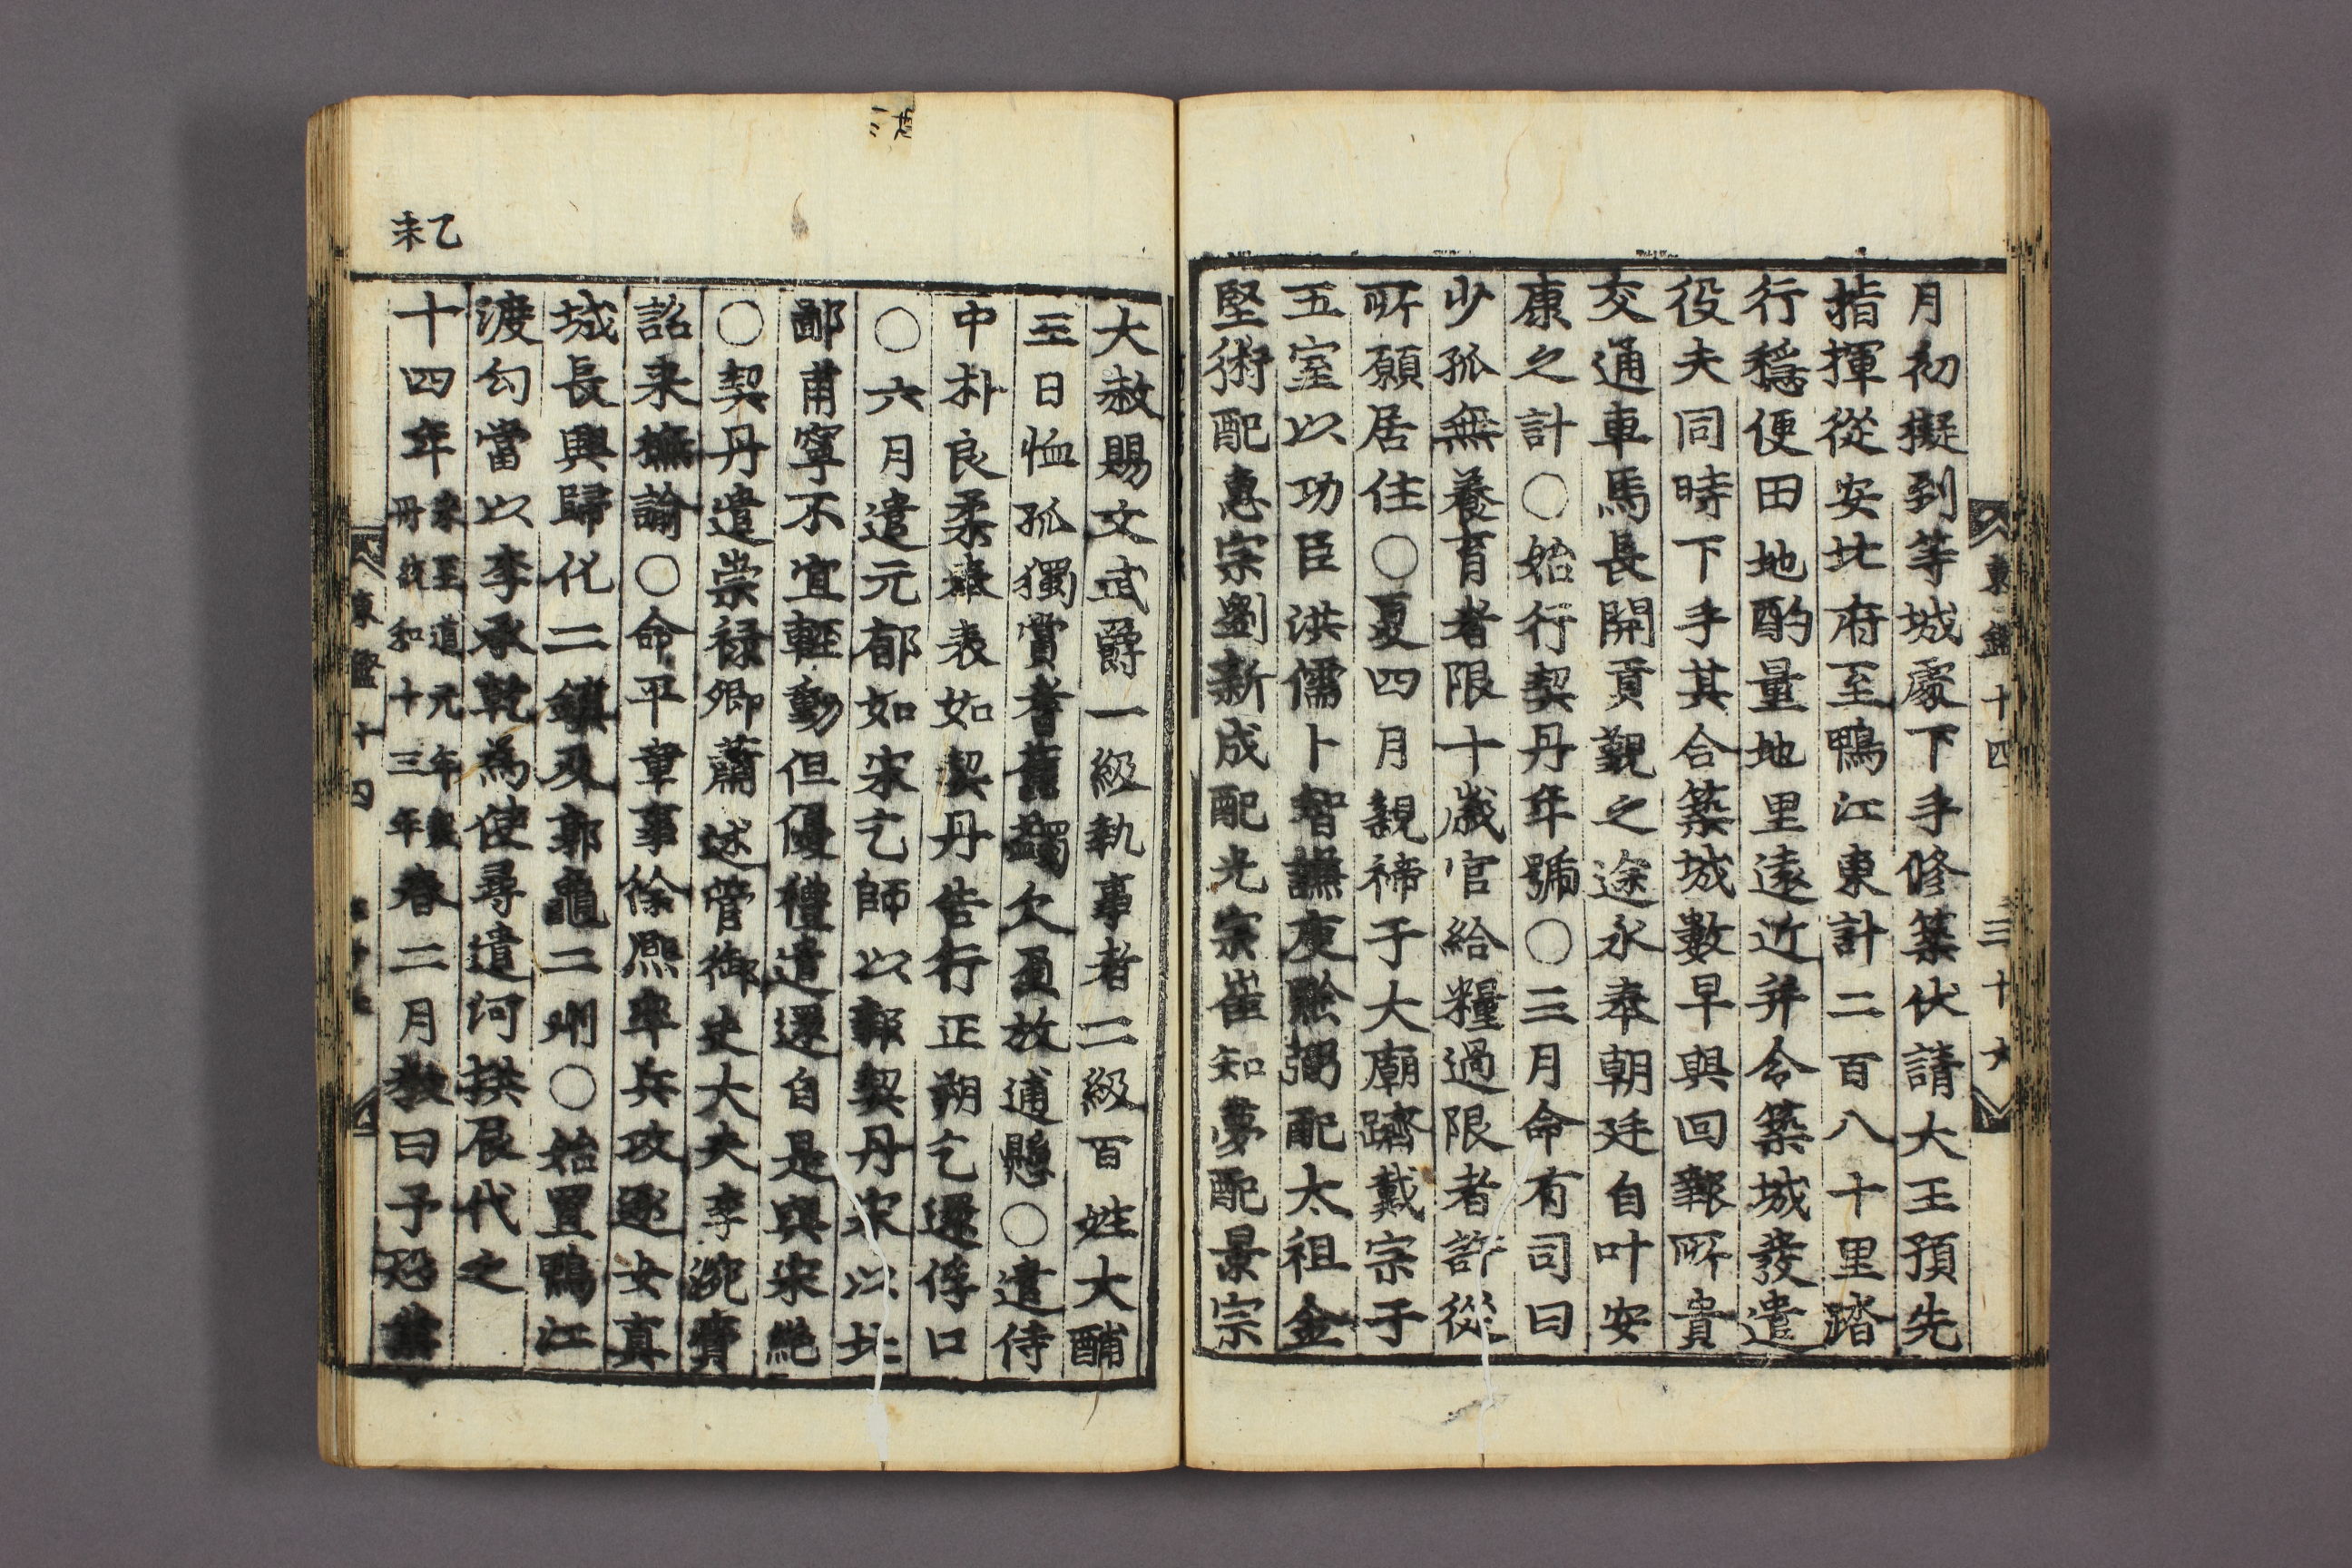 月初擬到等城處下手修築伏請大王預先
指揮從安北府至鴨江東計二百八十里踏
行穩便田地酌量地里遠近并令築城發遣
役夫同時下手其合築城數早與回報所貴
交通車馬長開貢覲之途永奉朝廷自叶安
康之計○始行契丹年號○三月命有司曰
少孤無養育者限十歲官給糧過限者許從
所願居住○夏四月親禘于大廟躋戴宗于
五室以功臣洪儒卜智謙庾黔弼配太祖金
堅術配惠宗劉新成配光宗崔知夢配景宗
東鑑十四
三十六
大赦賜文武爵一級執事者二級百姓大酺
三日恤孤獨賞耆舊蠲欠盈放逋懸○遣侍
中朴良柔奉表如契丹告行正朔乞還俘口
○六月遣元郁如宋乞師以報契丹宋以北
鄙甫寧不宜輕動但優禮遣還自是與宋絶
○契丹遣崇祿卿蕭述管御史大夫李涴賫
詔来撫諭○命平章事徐熙率兵攻逐女真
城長興歸化二鎮及郭龜二州○始置鴨江
渡勾當以李承乾為使尋遣河拱辰代之
乙未
十四年宋至道元年契丹統和十三年春二月教曰予恐業
東鑑十四